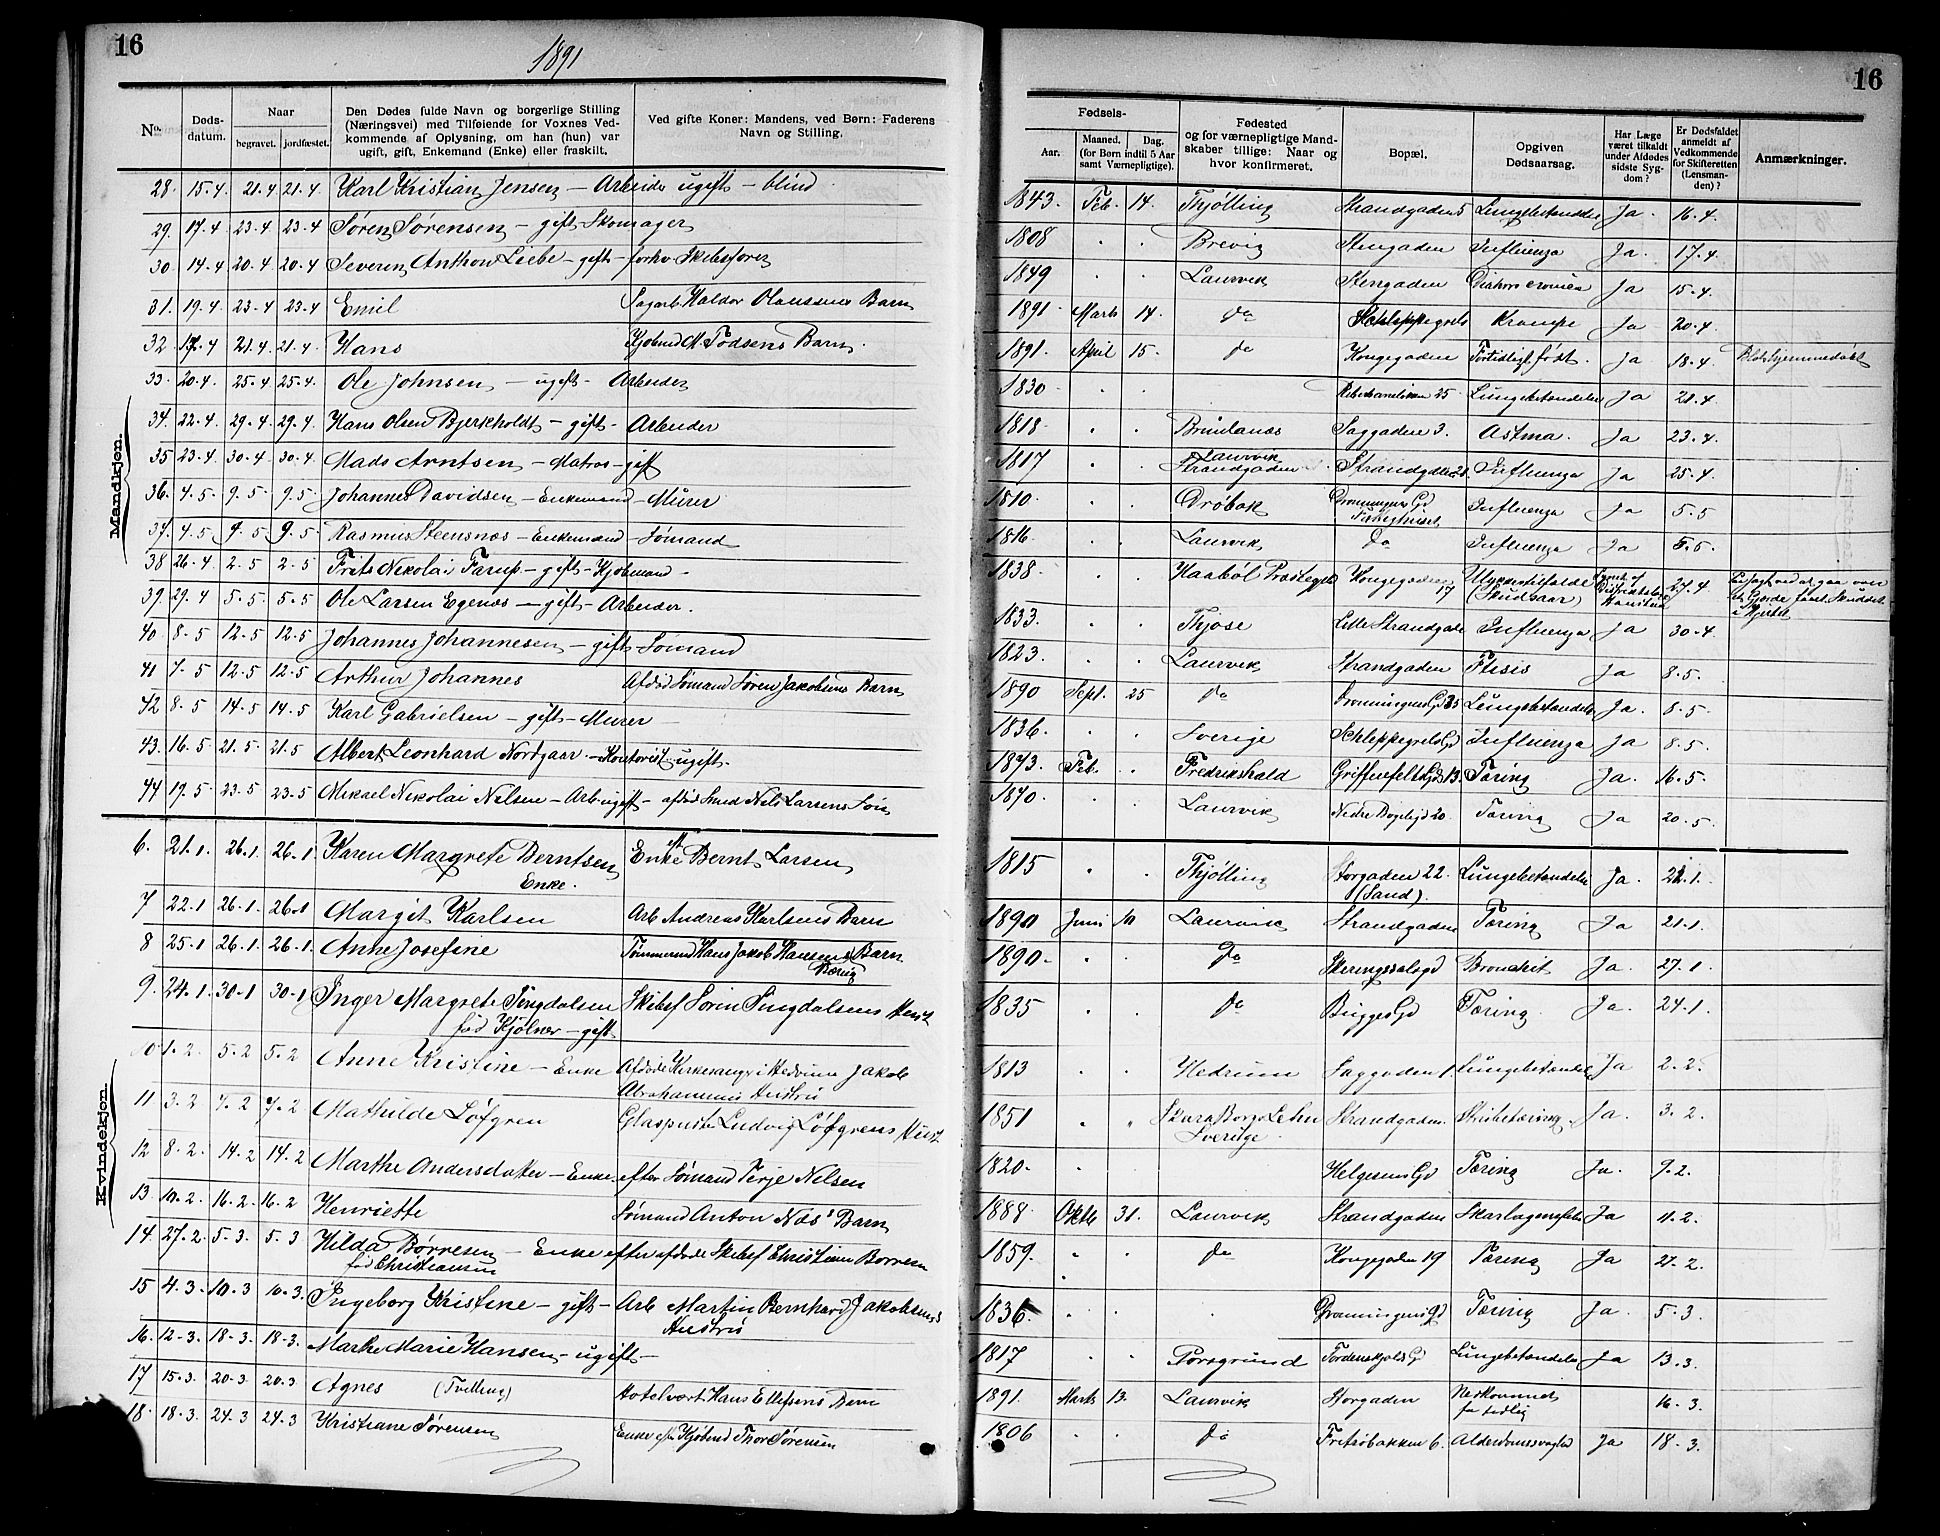 16
1891
No.
Døds-
datum.
Naar
begravet.
jordfæstet.
Den Dødes fulde Navn og borgerlige Stilling
(Næringsvei) med Tilføiende for Voxnes Ved-
kommende af Oplysning, om han (hun) var
ugift, gift, Enkemand (Enke) eller fraskilt.
Ved gifte Koner: Mandens, ved Børn: Faderens
Navn og Stilling.
Mandkjøn.
28. 15-4 21-4 21-4 Karl Kristian Jensen - Arbeider ugift - blind
29. 17-4 23-4 23-4 Søren Sørensen - gift Skomager
30. 14-4 20-4 20-4 Severin Anthon Liebe - gift - forhv Skibsfører
31. 19-4 23-4 23-4 Emil Sagarb Haldor Olaussens Barn
32 17-4 21-4 21-4 Hans Kjøbmd M. Todsens Barn
33. 20-4 25-4 25-4 Ole Johnsen - ugift - Arbeider
34. 22-4 29-4 29-4 Hans Olsen Bjerkholdt - gift - Arbeider
35 23-4 30-4 30-4 Mads Arntsen - Matros - gift
36. 4-5 9-5 9-5 Johannes Davidsen - Enkemand - Murer
37. 4-5 9-5 9-5 Rasmus Steensnæs - Enkemand - Sømand
38 26-4 2-5 2-5 Frits Nikolai Farup - gift - Kjøbmand -
39. 29-4 5-5 5-5 Ole Larsen Egenæs - gift - Arbeider.
40 8-5 12-5 12-5 Johannes Johannesen - gift Sømand
41 7-5 12-5 12-5 Arthur Johannes Afdød Sømand Søren Jakobsens Barn
42 8-5 14-5 14-5 Karl Gabrielsen - gift - Murer -
43. 16-5 21-5 21-5 Albert Leonhard Nordgaar - Kontorist ugift -
44 19-5 23-5 23-5 Mikael Nikolai Nilsen - Arb ugift - afdød Smed Nils Larsens Søn
Kvindekjøn.
6. 21-1 26-1 26-1 Karen Margrete Berntsen Enke eft Bernt Larsen
Enke.
7 22-1 26-1 26-1 Margit Karlsen Arb Andreas Karlsens Barn
8 25-1 26-1 26-1 Anne Josefine Tømmermd Hans Jakob Hansens Barn
9. 24-1 30-1 30-1 Inger Margrete Tingdalsen Skibsf Sørin Tingdalsens Hust
fød Kjølner - gift
10 1-2 5-2 5-2 Anne Kristine - Enke Afdøde Kirkesanger i Hedrum Jakob
Abrahamsens Hustru
11 3-2 7-2 7-2 Mathilde Løfgren Glaspuster Ludvig Løfgrens Hust
12 8-2 14-2 14-2 Marthe Andersdatter - Enke efter Sømand Terje Nilsen
13. 10-2 16-2 16-2 Henriette Sømand Anton Næs' Barn
14. 27-2 5-3 5-3 Hilda Børresen - Enke efter afdøde Skibsf Christian Borresen
fød Christiansen
15 4-3 10-3 10-3 Ingeborg Kristine - gift - Arb Martin Bernhard Jakobsens
Hustru
16. 12-3 18-3 18-3 Marthe Marie Hansen - ugift -
17 15-3 20-3 20-3 Agnes (Tvilling) Hotelvært Hans Ellefsens Barn
18. 18-3 24-3 24-3 Kristiane Sørensen Enke efter Kjøbmd Thor Sørensen
16
Fødsels-
Aar.
Maaned.
Dag.
(for Børn indtil 5 Aar
samt Værnepligtige).
Fødested
og for værnepligtige Mand-
skaber tillige: Naar og
hvor konfirmeret.
Bopæl.
Opgiven
Dødsaarsag.
Har Læge
været tilkaldt
under Afdødes
sidste Syg-
dom?
Er Dødsfaldet
anmeldt af
Vedkommende
for Skifteretten
(Lensman-
den)?
Anmærkninger.
1843. Feb. 14. Thjølling Strandgaden 5 Lungebetændelse Ja. 16-4.
1808 Brevig Stengaden Influenza Ja. 17-4.
1849 Laurvik Stengaden Ja 15-4.
1891 Marts 14. do Schleppegrels Krampe Ja 20-4.
1891. April 15. do Kongegaden Fortidligt født. Ja 18-4. hjemmedøbt
1830 25 Lungebetændelse Ja 21-4.
1818 Brunlanæs Saggaden 3. Astma. Ja 23-4.
1817 Laurvik
Strandgaden Strandgaden 21. Influenza Ja 25-4.
1810 Drøbak Dronningens Gd
Fattighuset Influenza Ja 5-5
1816. Laurvik do Influenza Ja 5-5.
1838 Haabøl Præstegd Kongegaden
17 Ulykkestilfælde
(Skudsaar) 27-4
1833. Thjøse Lille Strandgade Influenza Ja 30-4.
1823. Laurvik Strandgaden Ftisis Ja 8-5.
1890 Sept. 25 do Dronningens Gd 35 Lungebetændelse Ja. 8-5.
1836. Sverige Schleppegrels Gd Influenza Ja 8-5.
1873. Feb. Fredrikshald Griffenfelts Gd 13. Tæring Ja. 16-5.
1870. Laurvik Nedre Bøgeligd 20 Tæring Ja 20-5.
1815 Thjølling Storgaden 22. Lungebetændelse Ja. 22-1.
(Sand).
1890 Juni 10 Laurvik Strandgaden Tæring Ja 21-1.
1890 do Skiringssalsgd Bronchit Ja. 27-1
1835 do Brigges Gd Tæring. Ja. 24-1.
1813 Hedrum Saggaden 1. Lungebetændel Ja 2-2.
1851 Skara Borgs Lehn
Sverige Strandgaden. Strubetæring. Ja. 3-2.
1820 Helgesens Gd Tæring Ja. 9-2.
1888 Oktb 31. Laurvik Strandgaden Skarlagensfeber Ja 11-2.
1859. do Kongegaden 19 Tæring Ja 27-2.
1836. Dronningens gd Tæring Ja. 5-3.
1817 Porsgrund Tordenskjolds Gd Lungebetændelse Ja 13-3.
1891. Marts 13. Laurvik Storgaden Nedkommet
for tidlig 16-3.
1806 do Fritzøbakken 6. Alderdomssvaghed Ja 18-3.